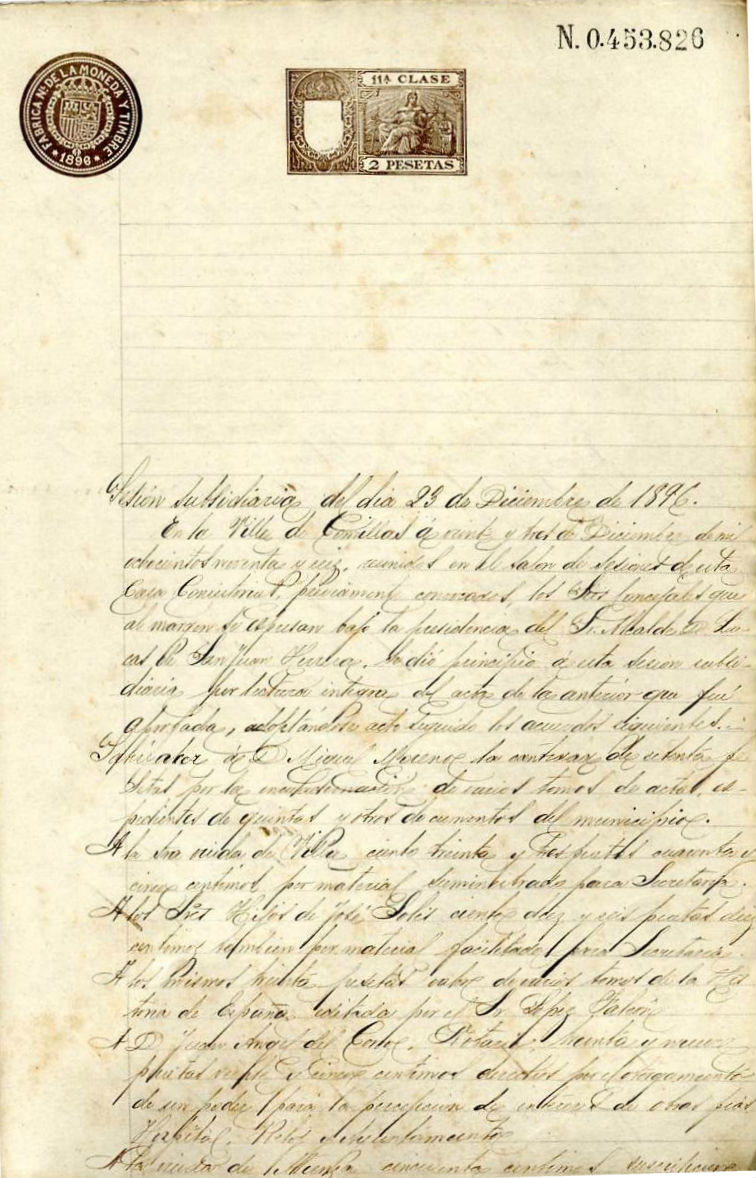 N. 0.453.826
FABRICA Nal. DE LA MONEDA Y TIMBRE
* 1896 *
11ª CLASE
2 PESETAS
Sesión subsidiaria del dia 23 de Diciembre de 1896.
En la Villa de Comillas á veinte y tres de Diciembre de mil
ochocientos noventa y seis, reunidos en el salon de sesiones de esta
Casa Consistorial, previamente convocados, los Sres Concejales que
al margen se espresan bajo la presidencia del S. Alcalde D. Lu-
cas de San Juan Herrera, se dió principio á esta sesion subsi-
diaria por lectura integra del acta de la anterior que fué
aprobada, adoptándose acto seguido los acuerdos siguientes.
de D Miguel Moreno la cantidad de setenta pe
setas por la encuadernación de varios tomos de actas, es-
pedientes de quintas y otros documentos del municipio.
A la Sra viuda de Villa ciento treinta y tres pesetas cuarenta y
cinco centimos por material suministrado para Secretaría.
A los Sres Hijos de José Solis ciento diez y seis pesetas diez
centimos tambien por material facilitado para Secretaría.
A los mismos treinta pesetas valor de varios tomos de la His
toria de España editada por el Sr
A D. Juan Angel del Notario, treinta y nueve
pesetas veinte y cinco centimos derechos por el otorgamiento
de un poder para la percepcion de intereses de obras pias
Hospital,
A la viuda de cincuenta centimos suscripcion